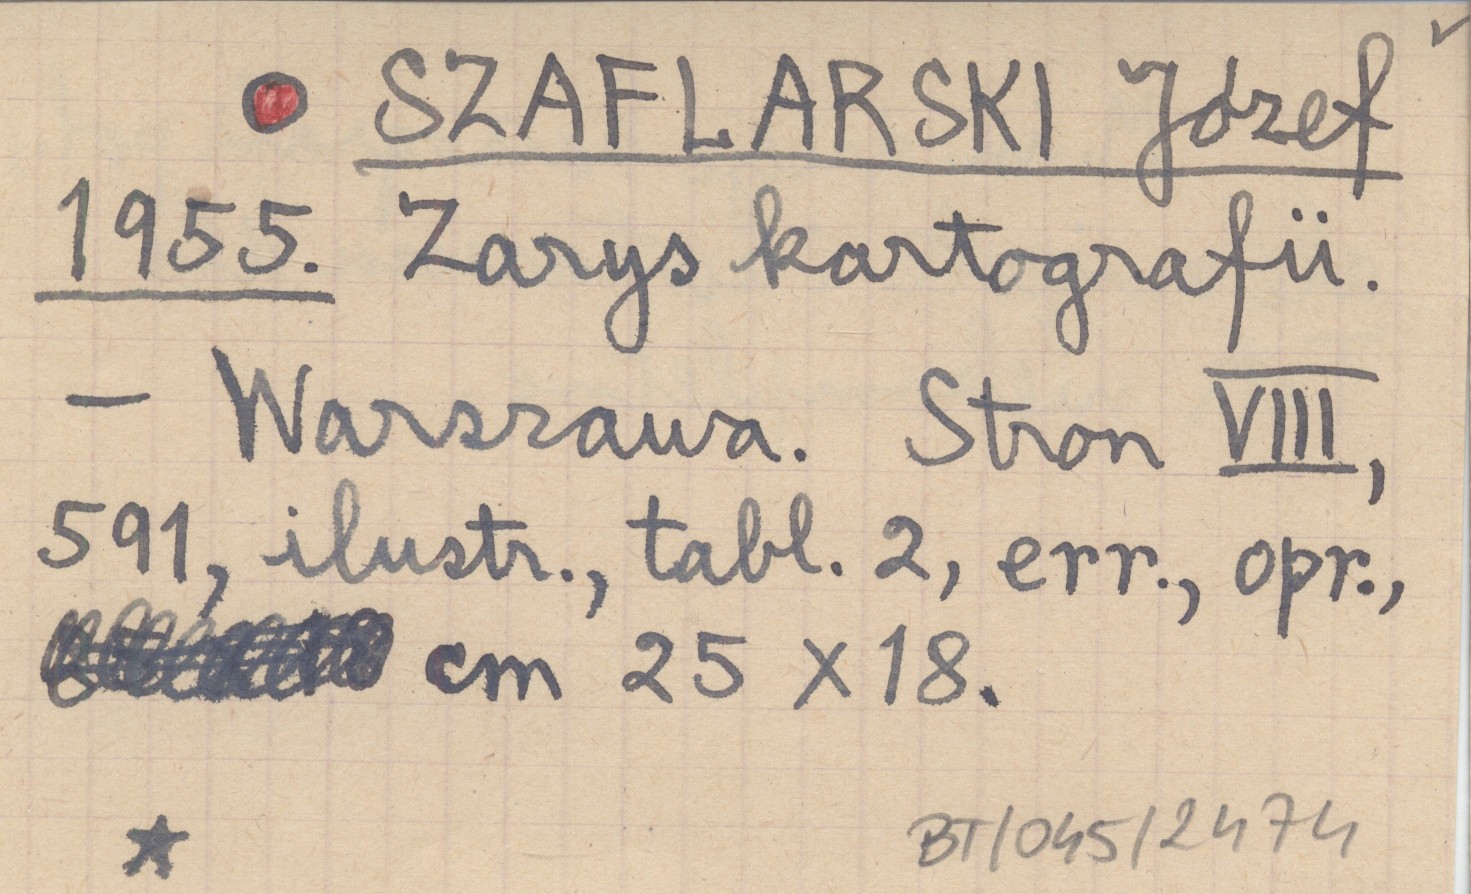 SZAFLARSKI Józef
1955. Zarys kartografii.
— Warszawa. Stron VIII,
591, ilustr., tabl. 2, err., opr.,
cm 25 x 18.
BT/045/2474